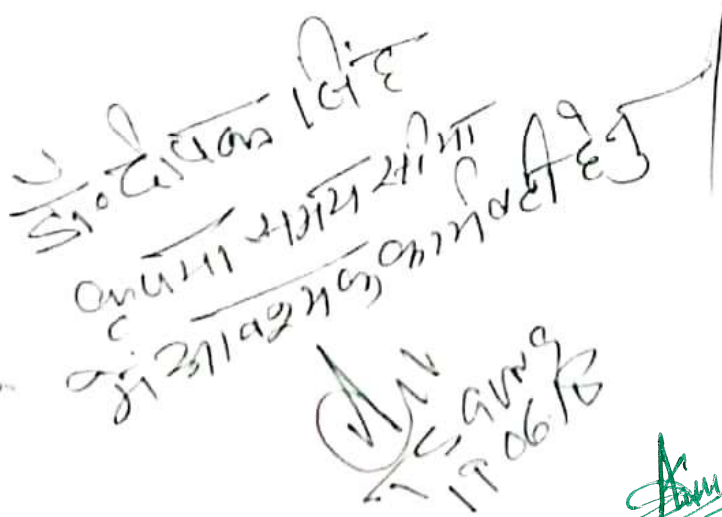 डॉ० दीपक सिंह
कृपया समय सीमा
में आवश्यक कार्यवाही हेतु